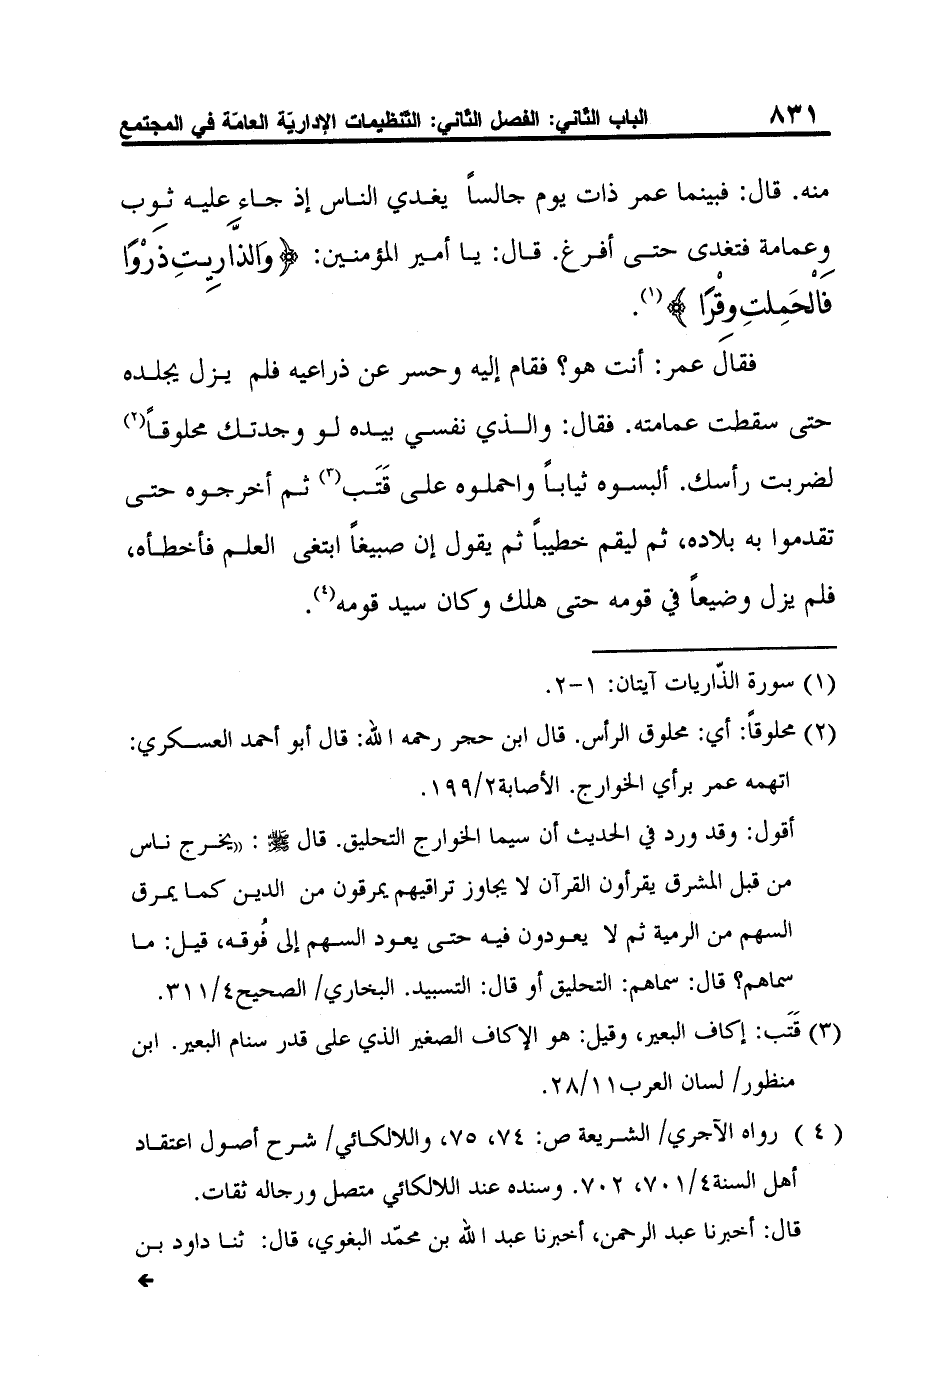 الباب الثاني: الفصل الثاني: التنظيمات الإداريّة العامّة في المجتمع ٨٣١
منه. قال: فبينما عمر ذات يوم جالساً يغدي الناس إذ جاء عليه ثوب
وعمامة فتغدى حتى أفرغ. قال: يا أمير المؤمنين: ﴿ وَالذَّارِيَتِ ذَرْوًا
فَالْحَمِلَتِ وِقْرًا ﴾(١).
فقال عمر: أنت هو؟ فقام إليه وحسر عن ذراعيه فلم يزل يجلده
حتى سقطت عمامته. فقال: والذي نفسي بيده لو وجدتك محلوقاً(٢)
لضربت رأسك. ألبسوه ثياباً واحملوه على قَتَب(٣) ثم أخرجوه حتى
تقدموا به بلاده، ثم ليقم خطيباً ثم يقول إن صبيغاً ابتغى العلم فأخطأه،
فلم يزل وضيعاً في قومه حتى هلك وكان سيد قومه(٤).
(١) سورة الذّاريات آيتان: ١-٢.
(٢) محلوقاً: أي: محلوق الرأس. قال ابن حجر رحمه الله: قال أبو أحمد العسكري:
اتهمه عمر برأي الخوارج. الأصابة٢/١٩٩.
أقول: وقد ورد في الحديث أن سيما الخوارج التحليق. قال ﷺ : «يخرج ناس
من قبل المشرق يقرأون القرآن لا يجاوز تراقيهم يمرقون من الدين كما يمرق
السهم من الرمية ثم لا يعودون فيه حتى يعود السهم إلى فُوقه، قيل: ما
سماهم؟ قال: سماهم: التحليق أو قال: التسبيد. البخاري/ الصحيح٤/٣١١.
(٣) قَتَب: إكاف البعير، وقيل: هو الإكاف الصغير الذي على قدر سنام البعير. ابن
منظور/ لسان العرب١١/٢٨.
(٤) رواه الآجري/ الشريعة ص: ٧٤، ٧٥، واللالكائي/ شرح أصول اعتقاد
أهل السنة٤/٧٠١، ٧٠٢. وسنده عند اللالكائي متصل ورجاله ثقات.
قال: أخبرنا عبد الرحمن، أخبرنا عبد الله بن محمّد البغوي، قال: ثنا داود بن
←